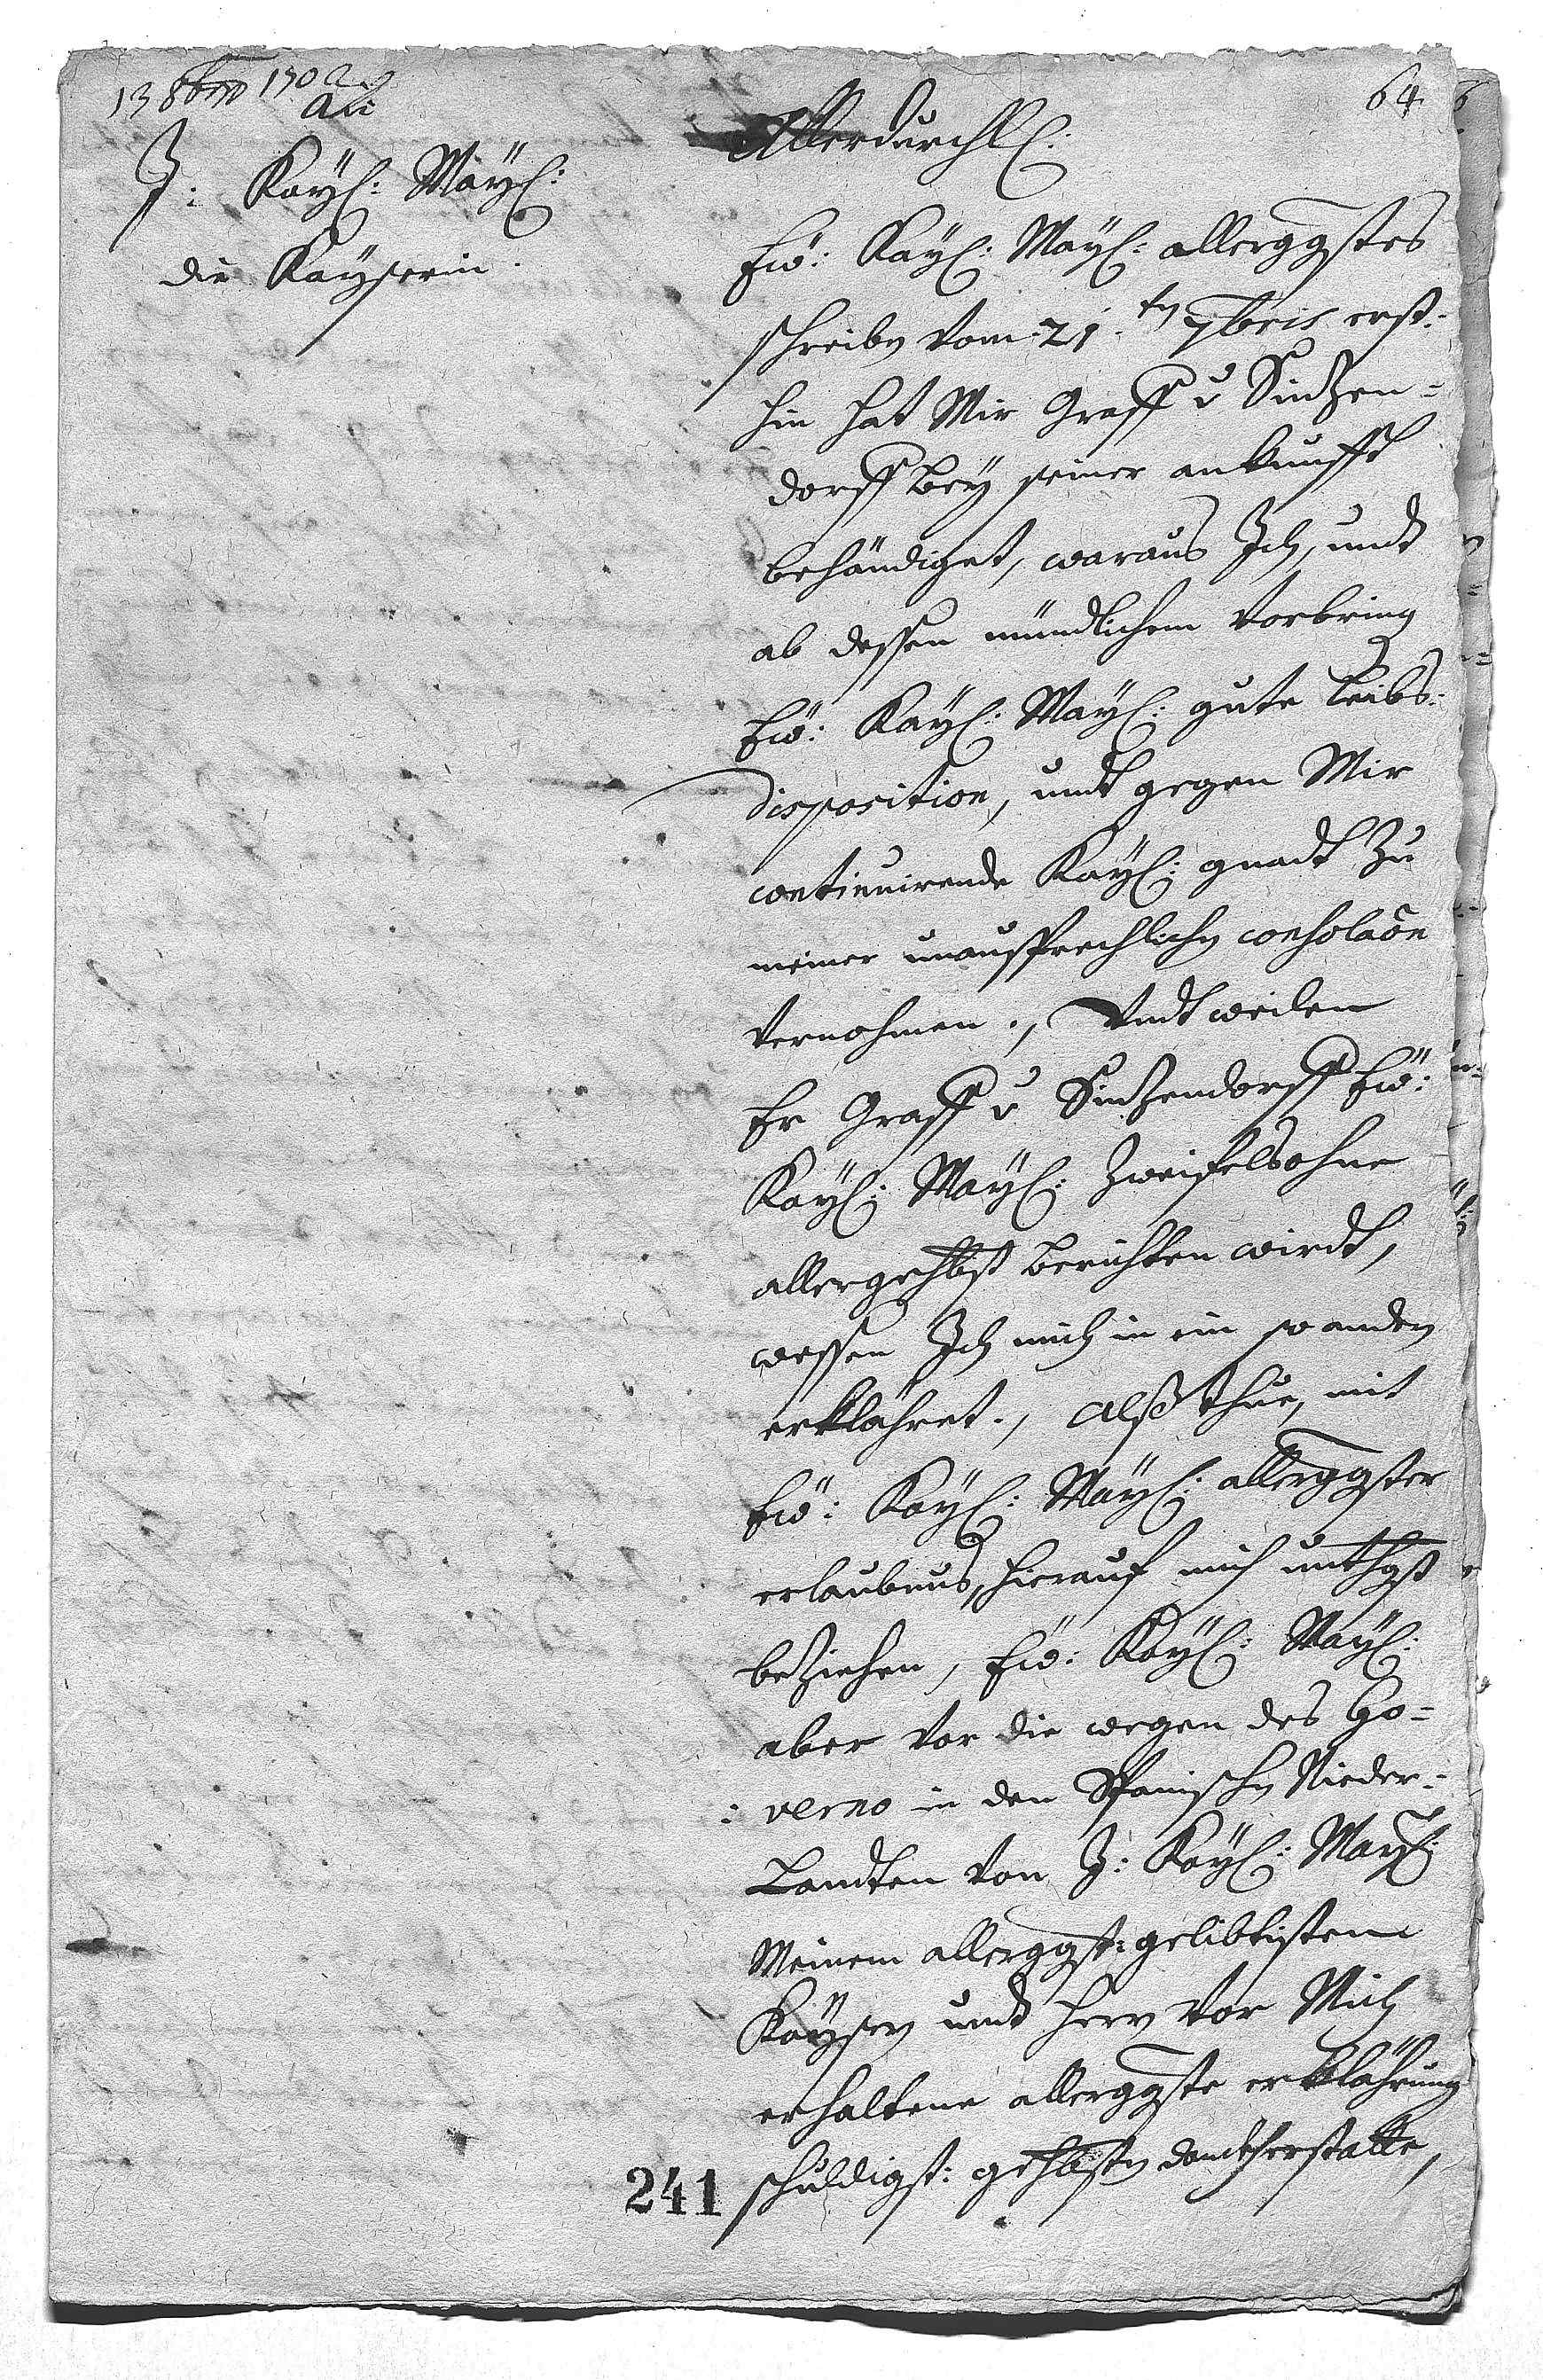 13 8bris 1702
An
64
J: Kayl: Mayl:
die Kayserin.
Allerdurchl:
Ew: Kayl: Mayl: allerggstes
schreiben vom 21.ten 7bris erst-
hin hat Mir Graff v Sintzen-
dorff bey seiner ankunfft
behändiget, woraus Ich, undt
ab dessen mündlichem vorbring
Ew: Kayl: Mayl: gute leibs-
disposition, undt gegen Mir
continuirende Kayl: gnadt zu
meiner unaussprechlichen consolaõn
vernohmen., Undt weilen
Er Graff v Sintzendorff Ew:
Kayl: Mayl: Zweifelsohne
allergehbst berichten wirdt,
wessen Ich mich in ein so andern
erklähret., Alß thue, mit
Ew: Kayl: Mayl: allerggster
erlaubnus, hierauf mich unthgst
beziehen, Ew: Kayl: Mayl:
aber vor die wegen des Go-
verno in den Spanischen Nieder-
Landten von J: Kayl: Mayl:
Meinem allerggst: gelibtisten
Kaysern undt Herrn vor Mich
erhaltene allerggste erklährung
schuldigst: gehbsten danckh erstatte,
241